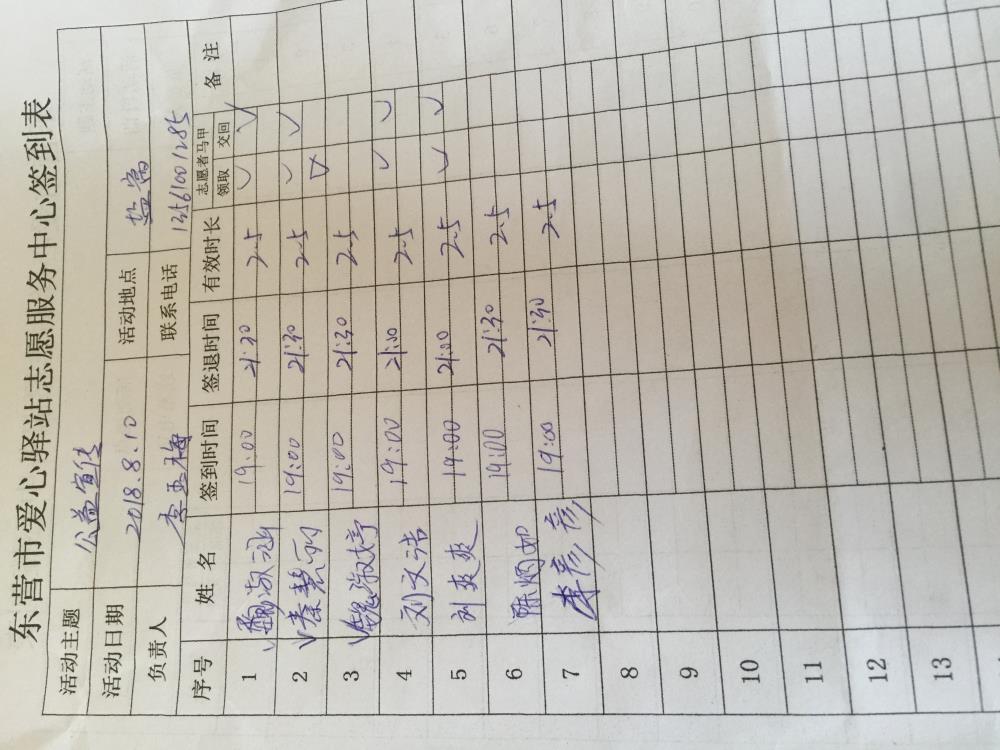 东营市爱心驿站志愿服务中心签到表
活动主题 公益宣传
活动日期 2018.8.10 活动地点 盐窝
负责人 李玉梅 联系电话 13561001285
序号 姓名 签到时间 签退时间 有效时长 志愿者马甲 备注
领取 交回
1 19:00 21:30 2.5 ✓ ✓
2 秦慧 19:00 21:30 2.5 ✓ ✓
3 魏淑婷 19:00 21:30 2.5 ✓
4 刘文洁 19:00 21:00 2.5 ✓ ✓
5 刘爽爽 19:00 21:00 2.5 ✓ ✓
6 陈炳如 19:00 21:30 2.5
7 李彦彦 19:00 21:30 2.5
8
9
10
11
12
13